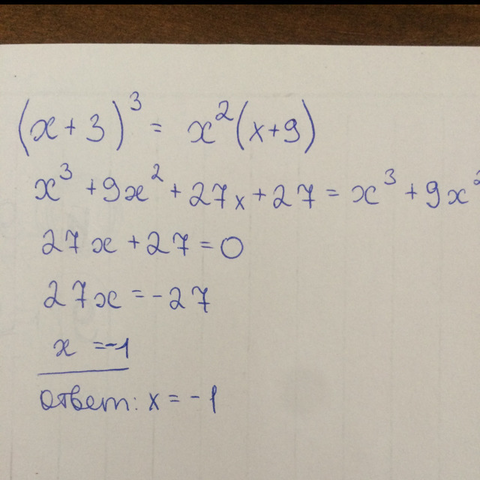 (x+3)³ = x²(x+9)
x³ + 9x² + 27x + 27 = x³ + 9x²
27x + 27 = 0
27x = -27
x = -1
ответ: x = -1